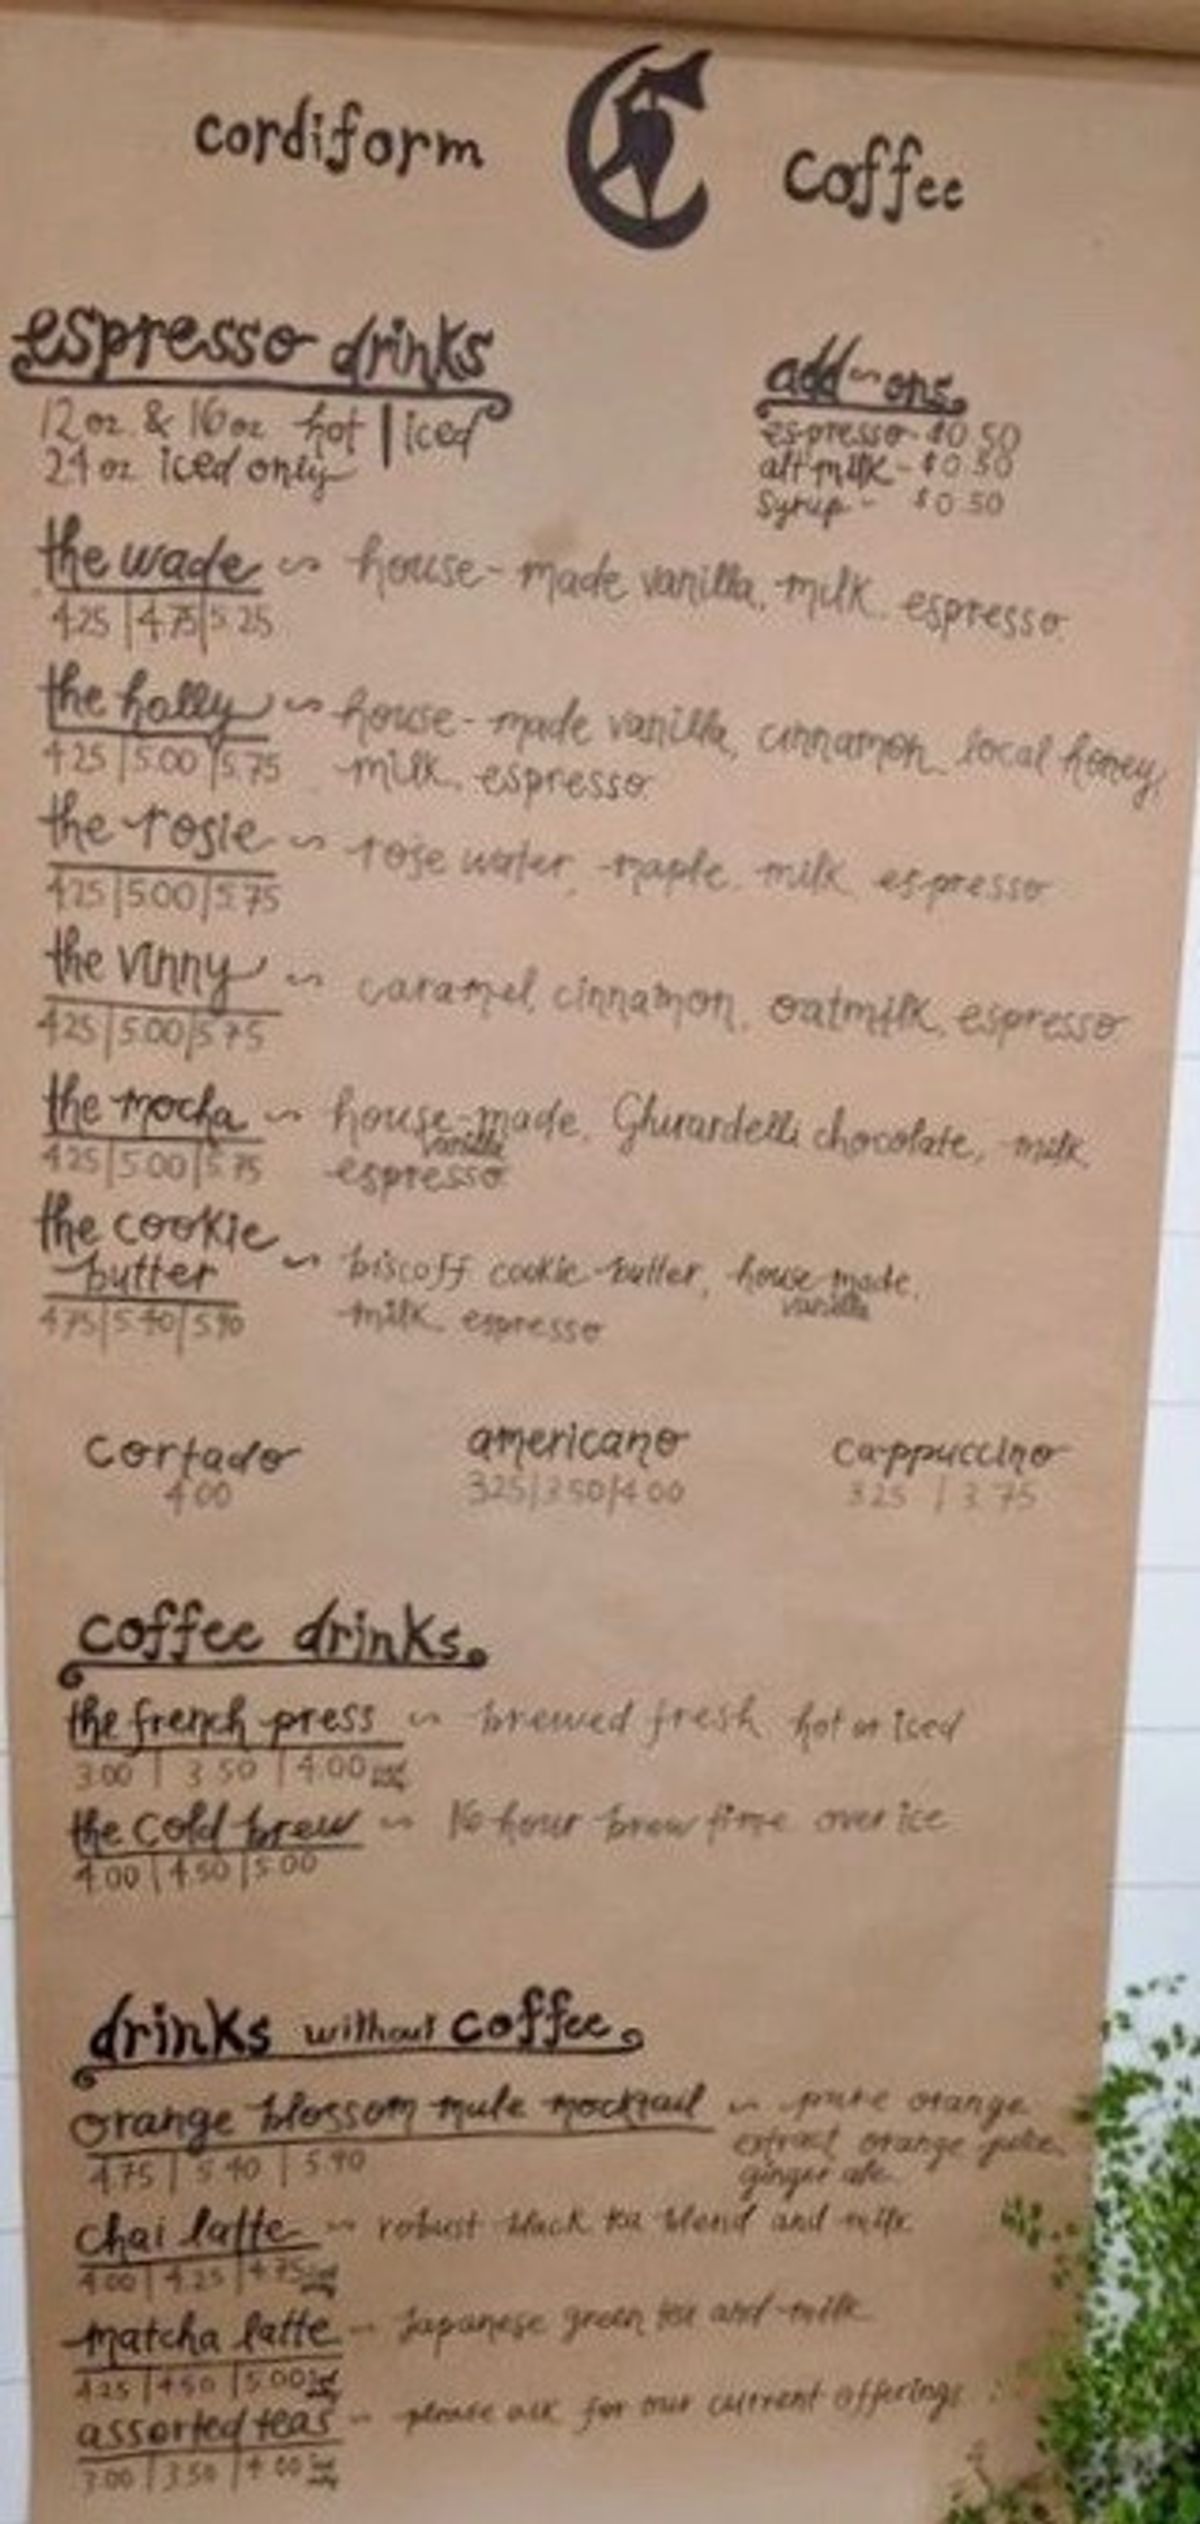 cordiform C coffee
espresso drinks
12 oz & 16 oz hot | iced
24 oz iced only
add-ons
espresso - $0.50
alt milk - $0.50
syrup - $0.50
the wade ~ house-made vanilla, milk, espresso
4.25 | 4.75 | 5.25
the holly ~ house-made vanilla, cinnamon, local honey,
4.25 | 5.00 | 5.75 milk, espresso
the rosie ~ rose water, maple, milk, espresso
4.25 | 5.00 | 5.75
the vinny ~ caramel, cinnamon, oatmilk, espresso
4.25 | 5.00 | 5.75
the mocha ~ house-made, Ghirardelli chocolate, milk,
vanilla
4.25 | 5.00 | 5.75 espresso
the cookie
butter ~ biscoff cookie butter, house made,
vanilla
4.75 | 5.40 | 5.90 milk, espresso
cortado americano cappuccino
4.00 3.25 | 3.50 | 4.00 3.25 | 3.75
coffee drinks
the french press ~ brewed fresh hot or iced
3.00 | 3.50 | 4.00
the cold brew ~ 16-hour brew time over ice
4.00 | 4.50 | 5.00
drinks without coffee
orange blossom mule mocktail ~ pure orange
extract, orange juice,
ginger ale
4.75 | 5.40 | 5.90
chai latte ~ robust black tea blend and milk
4.00 | 4.25 | 4.75
matcha latte ~ Japanese green tea and milk
4.25 | 4.50 | 5.00
assorted teas ~ please ask for our current offerings
3.00 | 3.50 | 4.00